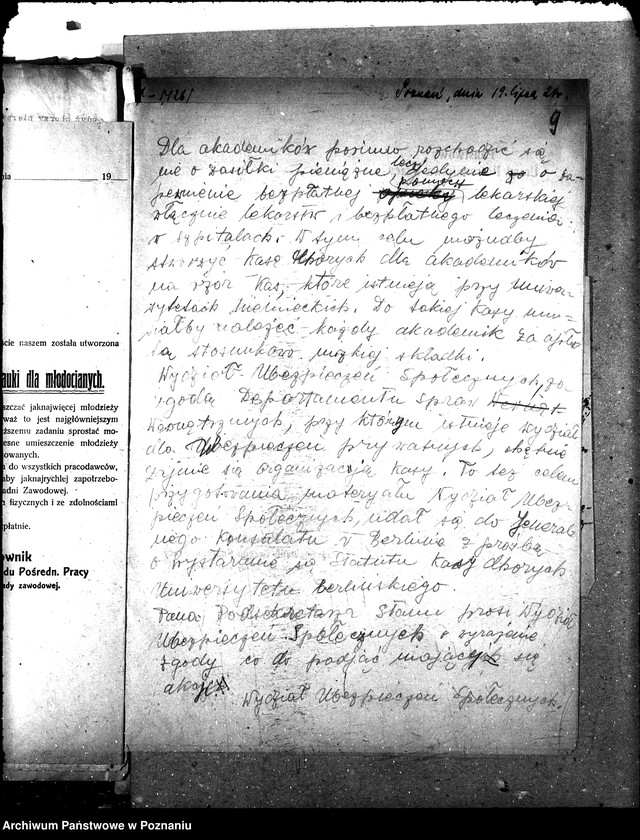 Poznań, dnia 19. lipca 21 r.
9
Dla akademików powinno rozchodzić się
nie o zasiłki pieniężne, lecz jedynie o za-
pewnienie bezpłatnej pomocy lekarskiej
włącznie lekarstw i bezpłatnego leczenia
w szpitalach. W tym celu możnaby
stworzyć Kasę Chorych dla akademików
na wzór Kas, które istnieją przy Uniwer-
sytetach Niemieckich. Do takiej Kasy mu-
siałby należeć każdy akademik za opła-
tą stosunkowo niskiej składki.
Wydział Ubezpieczeń Społecznych, za
zgodą Departamentu Spraw
Wewnętrznych, przy którym istnieje wydział
dla Ubezpieczeń prywatnych, chętnie
zajmie się organizacją Kasy. To też celem
przygotowania materyału Wydział Ubez-
pieczeń Społecznych, udał się do General-
nego Konsulatu w Berlinie z prośbą
o wystaranie się Statutu Kasy Chorych
Uniwersytetu berlińskiego.
Pana Podsekretarza Stanu prosi Wydział
Ubezpieczeń Społecznych o wyrażenie
zgody co do podjąć mającej się
akcji.
Wydział Ubezpieczeń Społecznych.
19
cie naszem została utworzona
auki dla młodocianych.
szczać jaknajwięcej młodzieży
waż to jest najgłówniejszym
ższemu zadaniu sprostać mo-
esne umieszczenie młodzieży
owanych.
do wszystkich pracodawców,
aby jaknajrychlej zapotrzebo-
adni Zawodowej.
fizycznych i ze zdolnościami
płatnie.
ownik
du Pośredn. Pracy
ady zawodowej.
Archiwum Państwowe w Poznaniu